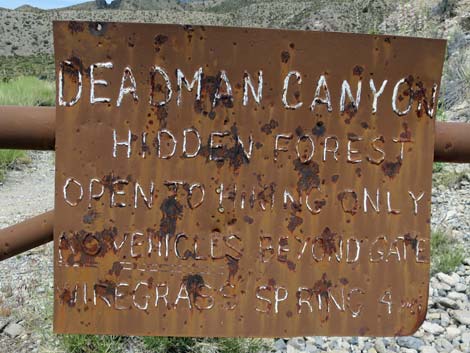 DEADMAN CANYON
HIDDEN FOREST
OPEN TO HIKING ONLY
NO VEHICLES BEYOND GATE
WIREGRASS SPRING 4 MI